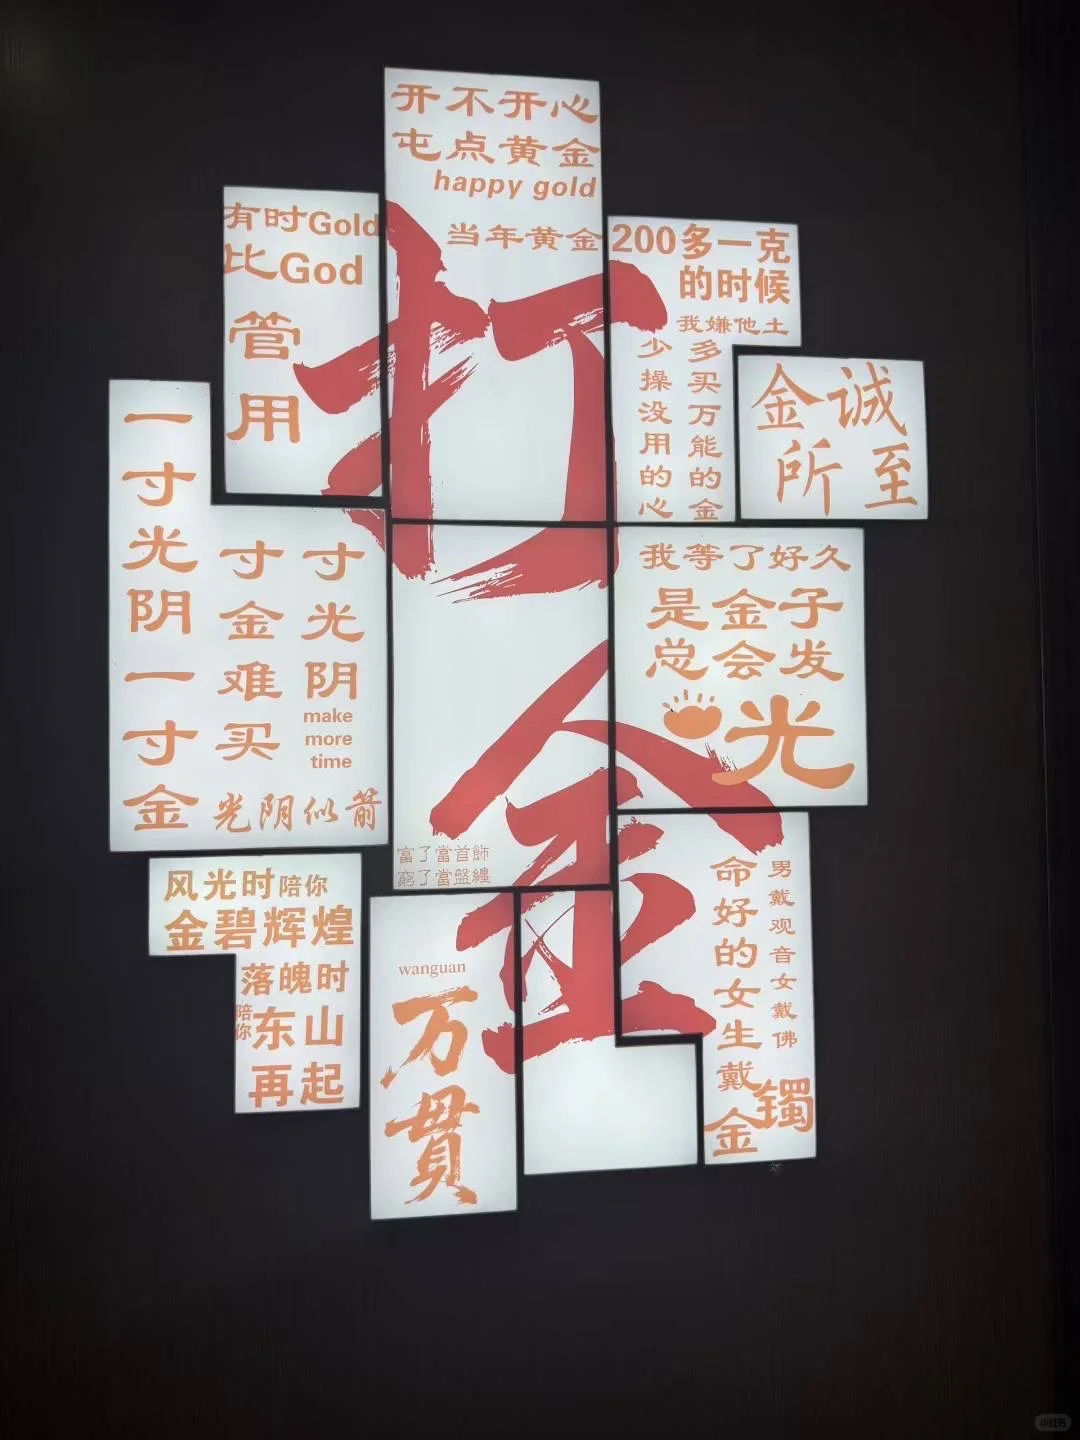 开不开心
屯点黄金
happy gold
当年黄金
200多一克
的时候
我嫌他土
多买万能的金
少操没用的心
有时Gold
比God
管用
打金
金诚
所至
一寸光阴一寸金
寸光阴
寸金难买
make
more
time
光阴似箭
我等了好久
是金子
总会发
光
富了當首飾
窮了當盤纏
风光时陪你
金碧辉煌
落魄时
陪你
东山
再起
wanguan
万貫
男戴观音女戴佛
命好的女生戴金镯
小红书